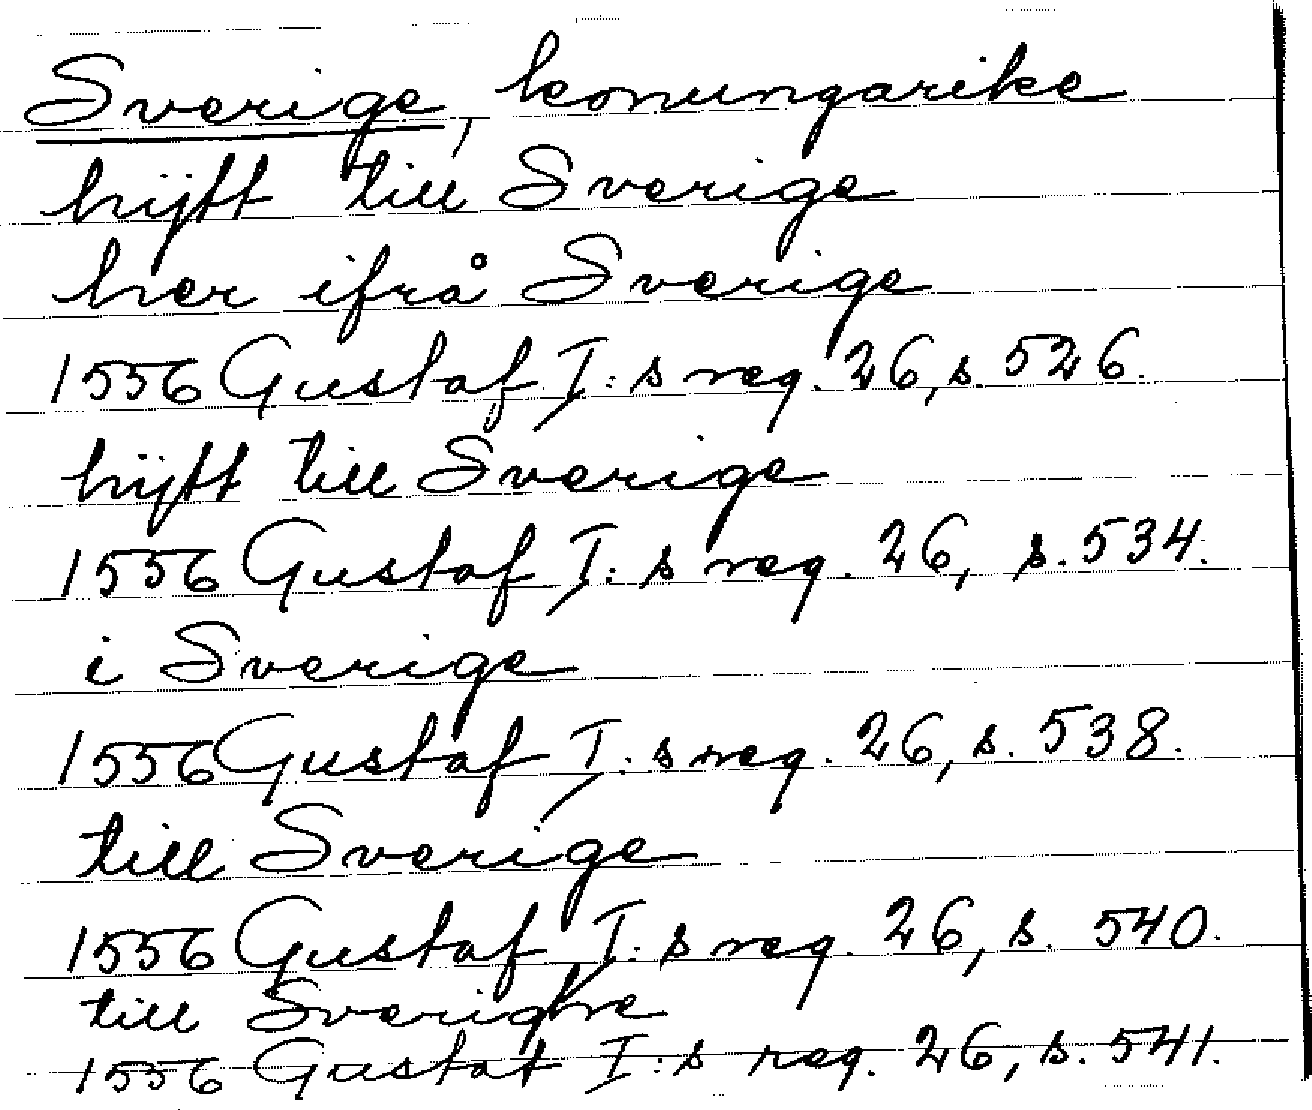 Sverige, konungarike
hijtt till Sverige
her ifrå Sverige
1556 Gustaf I:s reg. 26, s. 526.
hijtt till Sverige
1556 Gustaf I:s reg. 26, s. 534.
i Sverige
1556 Gustaf I:s reg. 26, s. 538.
till Sverige
1556 Gustaf I:s reg. 26, s. 540.
till Sverighe
1556 Gustaf I:s reg. 26, s. 541.